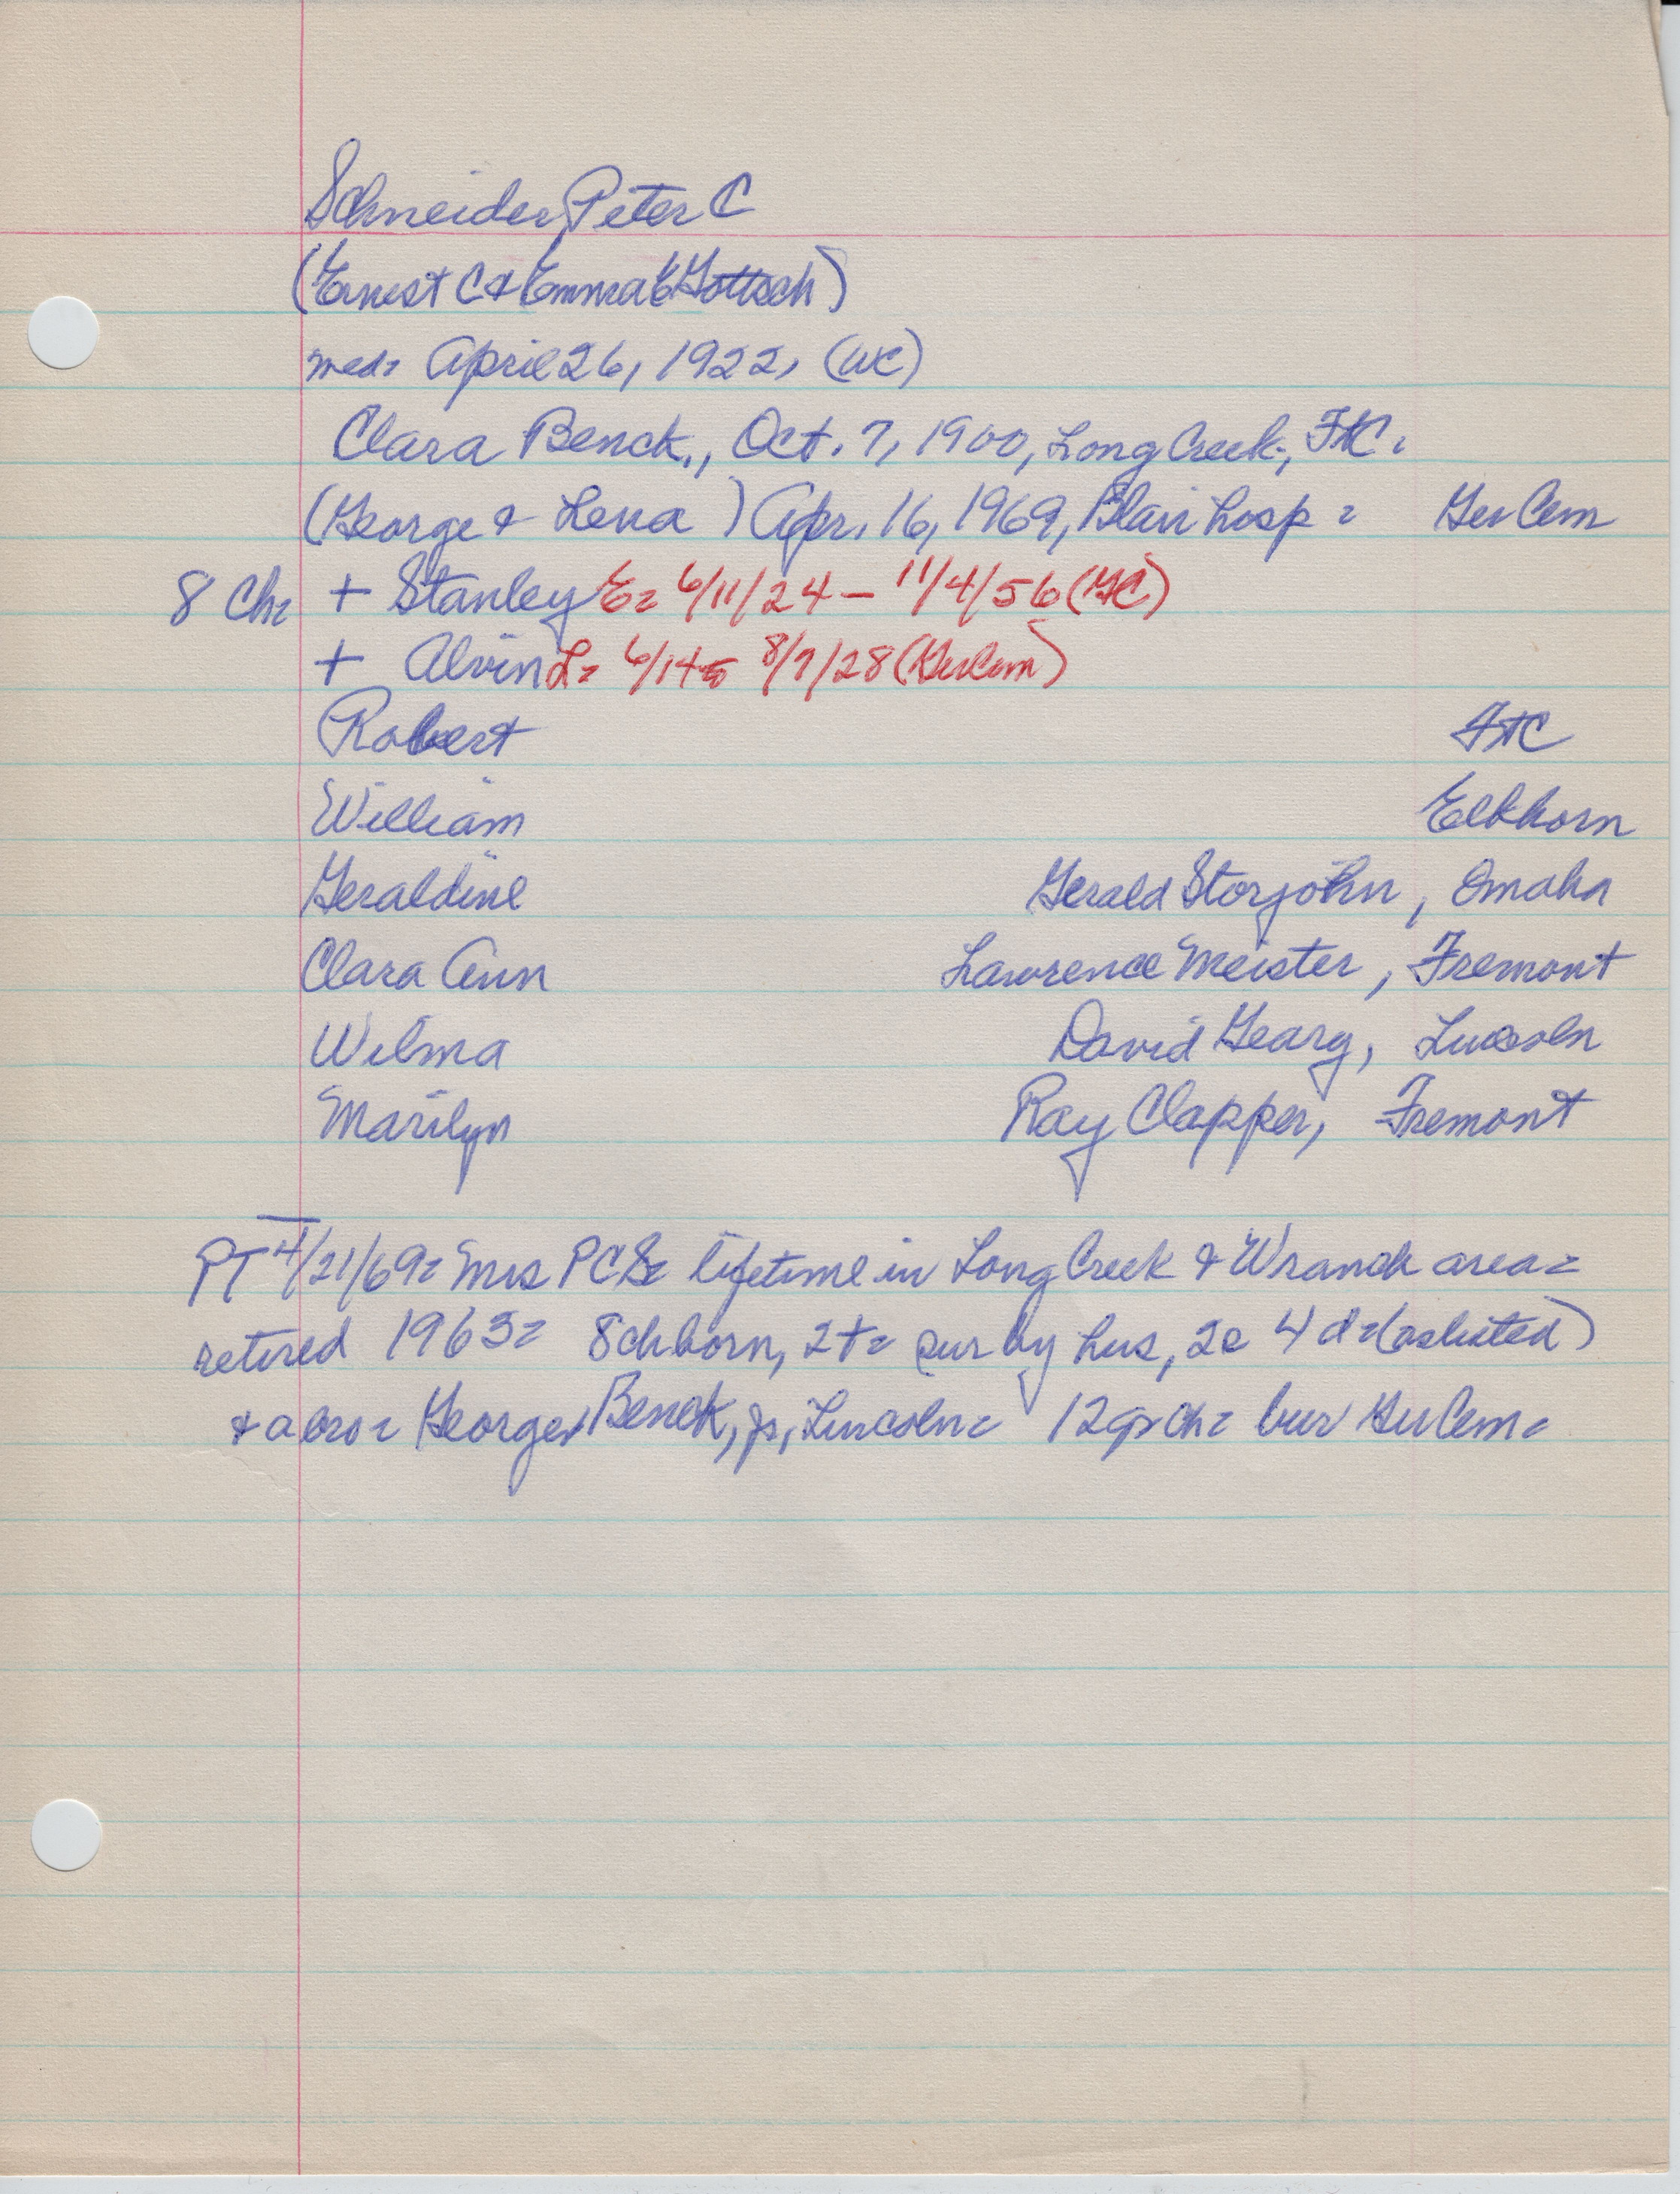 Schneider, Peter C
(Ernest C & Emma E Gottsch)
med= April 26, 1922, (WC)
Clara Benck, Oct. 7, 1900, Long Creek, FtC.
(George & Lena ) Apr. 16, 1969, Blair hosp = GerCem
8 Ch= + Stanley E= 6/11/24 – 11/4/56 (GC)
+ Alvin L= 6/14 8/7/28 (GerCem)
Robert FtC
William Elkhorn
Geraldine Gerald Storjohn, Omaha
Clara Ann Lawrence Meister, Fremont
Wilma David Gearg, Lincoln
Marilyn Ray Clapper, Fremont
PT 4/21/69= Mrs PCS= lifetime in Long Creek & Wranch area=
retired 1963= 8ch born, 2+= sur by hus, 2s 4d=(as listed)
& a bro= George Benck, jr, Lincoln= 12grch= bur GerCem=